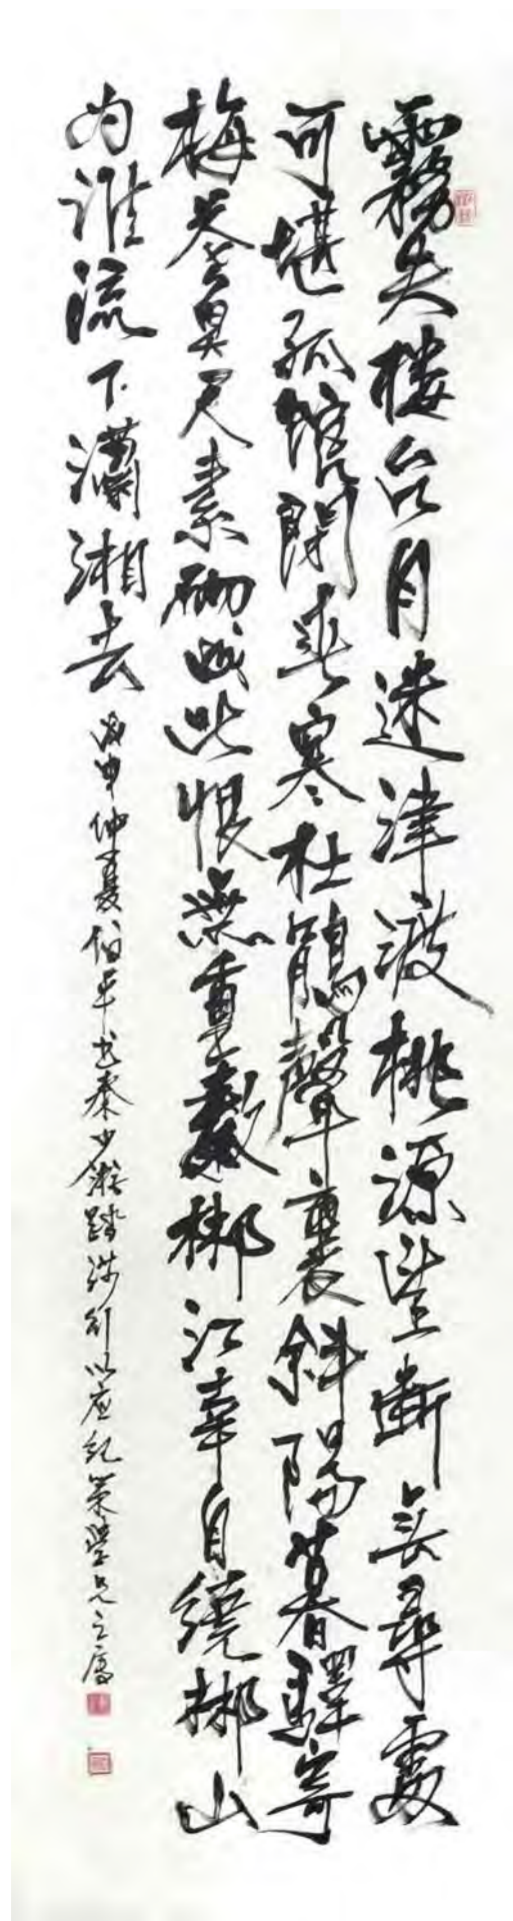 霧失楼台月迷津渡桃源望斷无尋處
可堪孤館閉春寒杜鵑聲裏斜陽暮驛寄
梅花魚尺素砌成此恨無重數郴江幸自繞郴山
为誰流下瀟湘去 丙申仲夏伯平书秦少游踏莎行以应纪策學兄之属